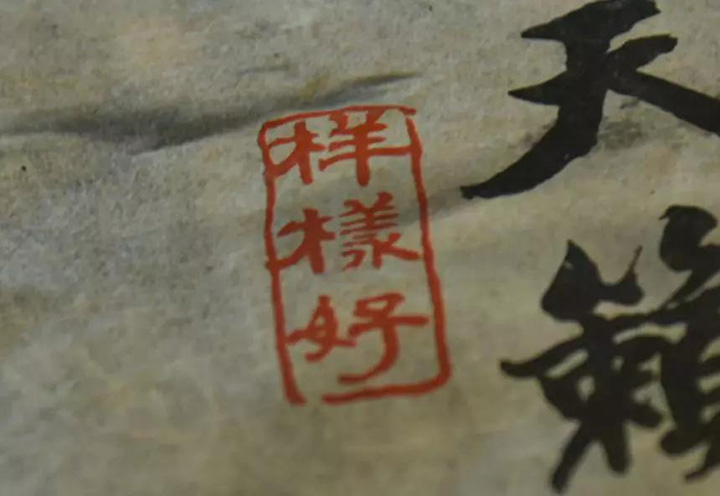 天籟
样樣好